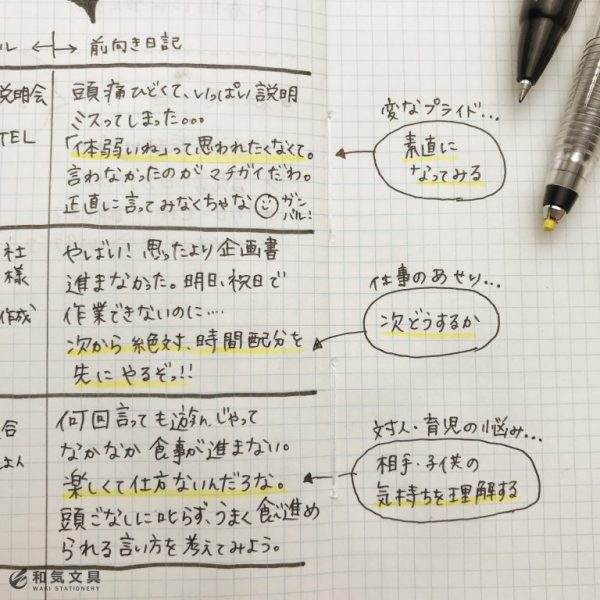 ル ←→ 前向き日記
説明会
TEL
頭痛ひどくて、いっぱい説明
ミスってしまった。。。
「体弱いね」って思われたくなくて。
言わなかったのがマチガイだわ。
正直に言ってみなくちゃな ガン
バル!
変なプライド...
素直に
なってみる
社
様
作成
やばい! 思ったより企画書
進まなかった。明日、祝日で
作業できないのに....
次から絶対、時間配分を
先にやるぞっ!!
仕事のあせり...
次どうするか
何回言っても遊んじゃって
なかなか食事が進まない。
楽しくて仕方ないんだろな。
頭ごなしに叱らず、うまく食べ進め
られる言い方を考えてみよう。
対人・育児の悩み...
相手・子供の
気持ちを理解する
和気文具
WAKI STATIONERY